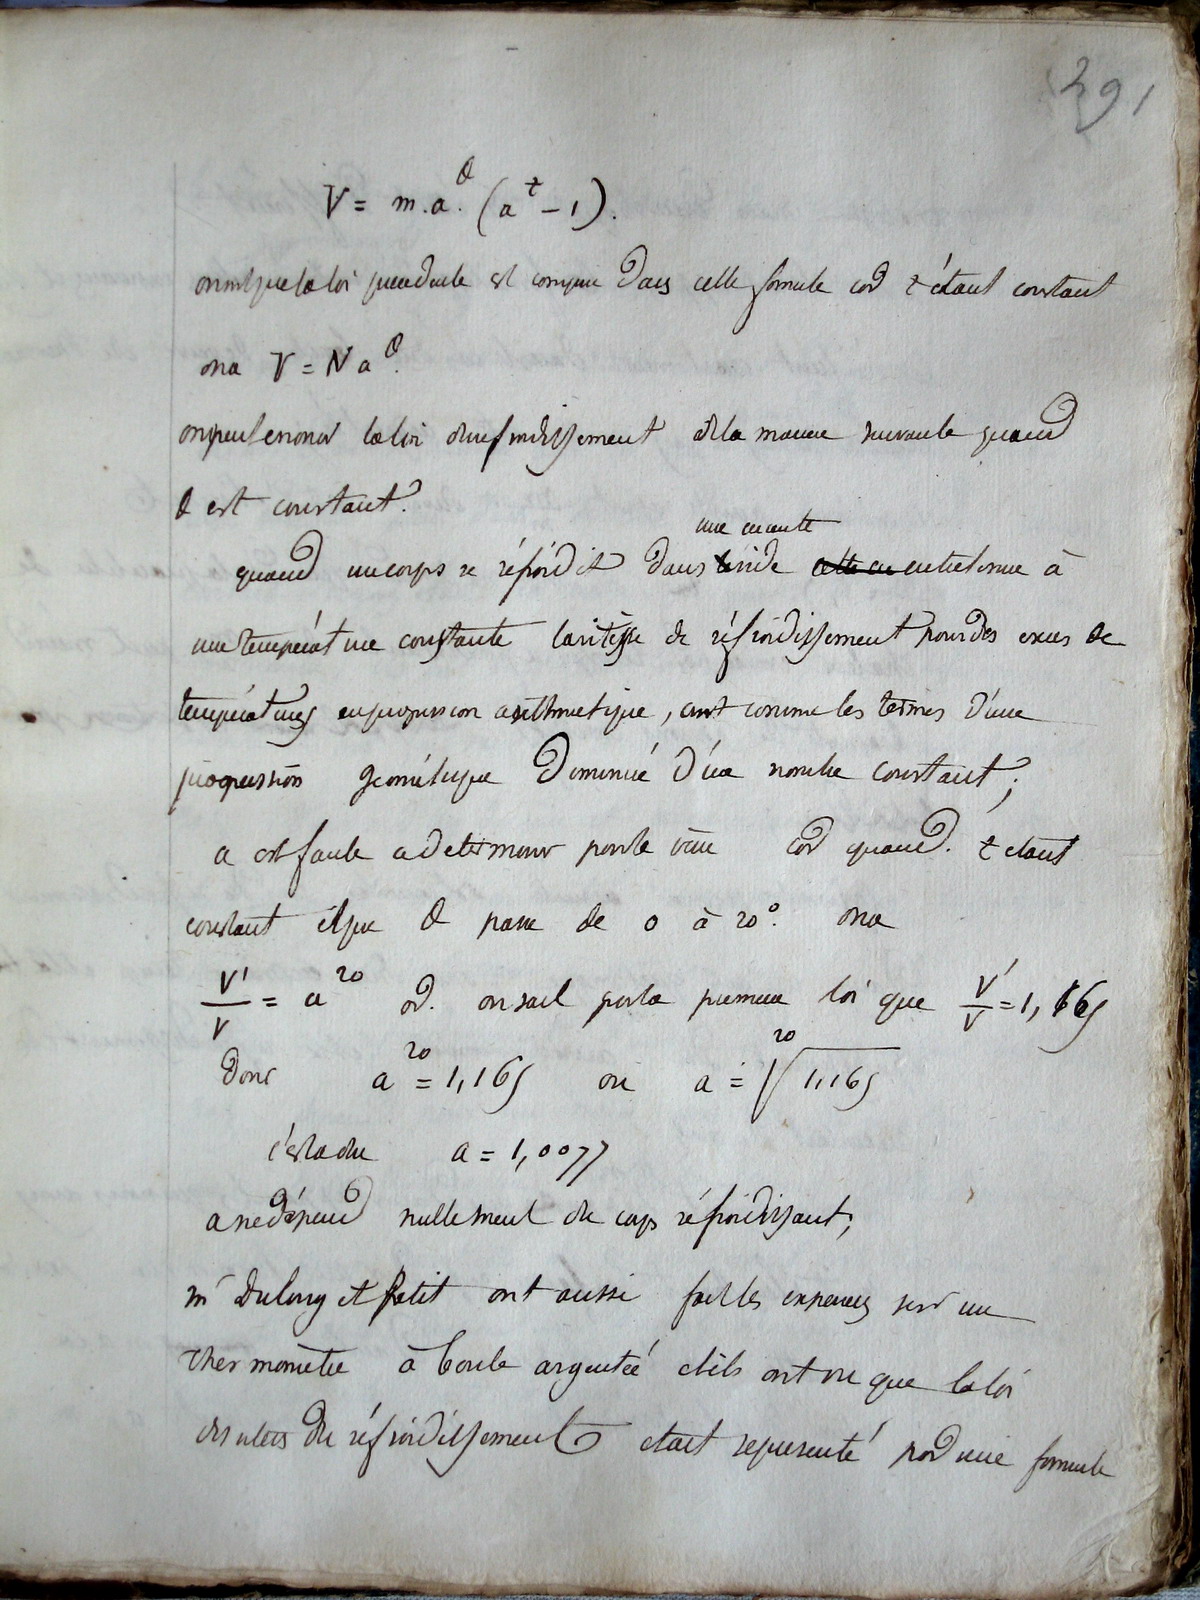 291
V = m.a.^θ (a^t − 1).
on voit que la loi precedente est comprise dans cette formule car t étant constant
on a V = N a^θ.
on peut enoncer la loi du refroidissement de la maniere suivante quand
θ est constant.
une enceinte
quand un corps se réfroidit dans vide entretenue à
une température constante la vitesse de réfroidissement pour des exces de
températures en progression arithmetique, sont comme les termes d'une
progression géométrique diminué d'un nombre constant;
a est facile a determiner pour le vide car quand t etant
constant et que θ passe de 0 à 20°. on a
V'/V = a^20 or. on sait par la premiere loi que V'/V = 1,165
Donc a^20 = 1,165 ou a = 20√1,165
c'est a dire a = 1,0077
a ne dépend nullement du corps réfroidissant;
mr Dulong et Petit ont aussi fait les experiences sur un
thermomètre à boule argenté et ils ont vu que la loi
des vitesses du réfroidissement etait representé par une formule